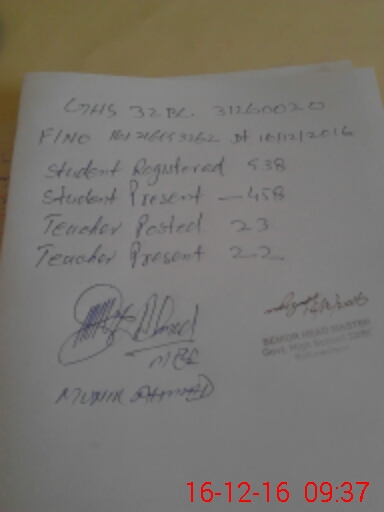 GHS 32 BC. 31260020
F/NO 161216153262 Dt 16/12/2016
Student Registered 538
Student Present — 458
Teacher Posted 23
Teacher Present 22
MEE
Munir Ahmad
SENIOR HEAD MASTER
Govt. High School 32/BC
Bahawalpur
16-12-16 09:37